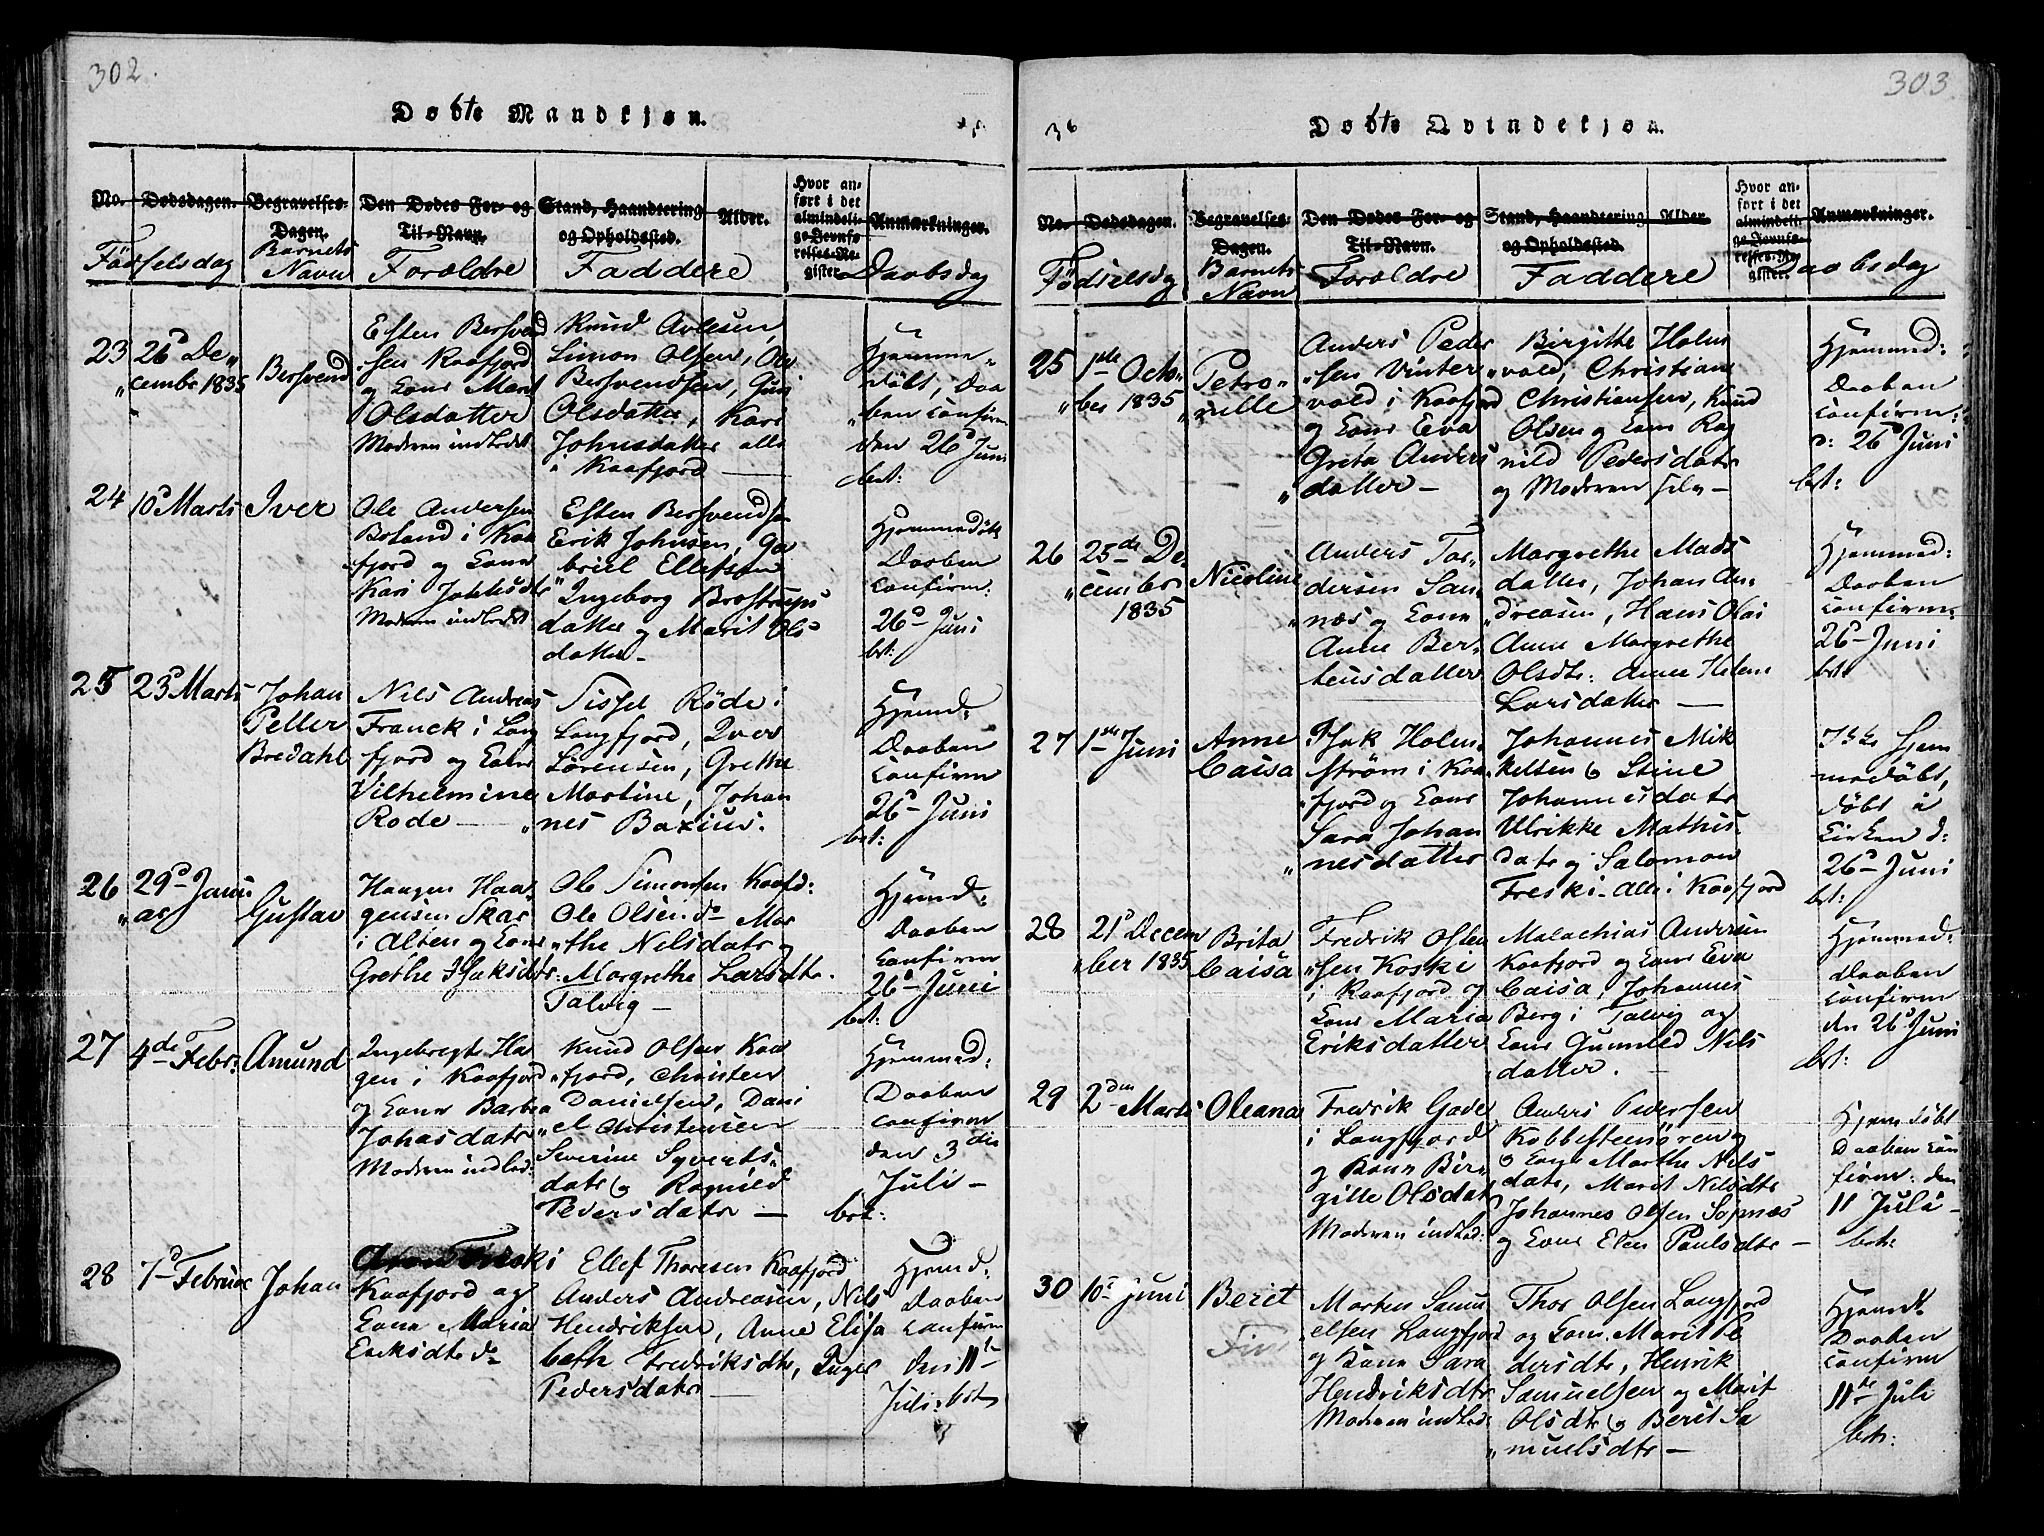 302.
Døbte Mandkjøn.
No.
Dødsdagen.
Begravelses-
Dagen.
Den Dødes For- og
Til-Navn.
Stand, Haandtering
og Opholdssted.
Alder.
Hvor an-
ført i det
almindeli-
ge Jevnfø-
relses-Re-
gister.
Anmærkninger.
Fødselsdag
Barnets
Navn
Forældre
Faddere
Daabsdag
23
26de De-
cembr 1835
Bersvend
Esten Bersvend
sen Kaafjord
og Kone Marit
Olsdatter
Moderen indledet
Knud Avlesen,
Simon Olsen, Ole
Bersvendsen, Guri
Olsdatter, Kari
Johnsdatter alle
i Kaafjord
Hjemme-
døbt, Daa-
ben confirm
den 26de Juni
bet:
24
10de Marts
Iver
Ole Andersen
Boland i Kaa
fjord og Kone
Kari Johnsdtr
Moderen indledet
Esten Bersvendsen
Erik Johnsen, Ga
briel Ellefsen
Ingeborg Brostrups
datter og Marit Ols
datter
Hjemmedøbt
Daaben
confirm:
26de Juni
bet:
25
23de Marts
Johan
Peller
Bredahl
Nils Andreas
Franck i Lang
fjord og Kone
Vilhelmine
Rode
Sissel Röde i
Langfjord, Iver
Sörensen, Grethe
Martine, Johan
nes Baxius.
Hjemd:
Daaben
confirm
26de Juni
bet:
26
29de Janu
ar
Gustav
Haagen Haa
gensen Skar
i Alten og Kone
Grethe Isaksdtr
Ole Simonsen Kaafd:
Ole Olsen do Mar
the Nilsdatr og
Margrethe Larsdtr.
Talvig
Hjemd:
Daaben
confirm
26de Juni
bet:
27
4de Febr:
Amund
Ingebregt Ha
gen i Kaafjord
og Kone Barbra
Johasdatr
Moderen indled:
Knud Olsen Kaa
fjord, Christen
Danielsen, Dani
el Christensen
Severine Syverts
datr og Ragnild
Pedersdatr
Hjemmed:
Daaben
confirm
den 3die
Juli
bet:
28
7de Februar
Johan
Kaafjord og
Kone Maria
Eriksdtr do
Ellef Thoresen Kaafjord
Anders Andreasen, Nils
Hendriksen, Anne Elisa
beth Fredriksdtr, Inger
Pedersdatr
Hjemd:
Daaben
confirm
den 11te
Juli: bet
303
36
Døbte Qvindekjøn.
No.
Dødsdagen.
Begravelses-
Dagen.
Den Dødes For- og
Til-Navn.
Stand, Haandtering
og Opholdssted.
Alder.
Hvor an-
ført i det
almindeli-
ge Jevnfø-
relses-Re-
gister.
Anmærkninger.
Födselsdag
Barnets
Navn
Forældre
Faddere
Daabsdag
25
1ste Octo-
ber 1835
Petro-
nille
Anders Peder
sen Vinter
vold i Kaafjord
og Kone Eva
Greta Anders
datter
Birgithe Holm
vold, Christian
Christiansen, Knud
Olsen og Kone Rag
nild Pedersdatr
og Moderen selv
Hjemmed:
Daaben
confirm:
d: 26de Juni
bet:
26
25de De
cember
1835
Nicoline
Anders Tor-
dersen San-
næs og Kone
Anne Ber-
teusdatter
Margrethe Mads
datter, Johan An-
dreasen, Hans Olai
Anne Margrethe
Olsdtr: Anne Helene
Larsdatter
Hjemmed:
Daaben
confirm:
26de Juni
bet:
27
1ste Juni
Anne
Caisa
Isak Holm
ström i Kaa
fjord og Kone
Sara Johan
nesdatter
Johannes Mik
kelsen og Stine
Johannesdatr
Ulrikke Mathis
datr og Salomon
Freski- Alle i Kaafjord
Ikke hjem
medøbt,
døbt i
Kirken d:
26de Juni
bet:
28
21de Decem
ber 1835
Brita
Caisa
Fredrik Osten
sen Koski
i Kaafjord og
Kone Maria
Eriksdatter
Malachias Andersen
Kaafjord og Kone Eva
Caisa, Johannes
Berg i Talvig og
Kone Gunnild Nils
datter.
Hjemmed:
daaben
confirm
den 26de Juni
bet:
29
2den Marts
Oleana
Fredrik Gade
i Langfjord
og Kone Bir-
gitte Olsdatr
Moderen indled:
Anders Pedersen
Kobbesteenören og
Kone Marthe Nils
datr, Marit Nilsdtr
Johannes Olsen Sopnæs
og Kone Elen Paulsdtr
Hjemdøbt
Daaben con
firm: den
11 Juli
bet:
30
10de Juni
Beret
Morten Samu
elsen Langfjord
og Kone Sara
Hendriksdtr
Moderen indled:
Thor Olsen Langfjord
og Kone Marit Pe
dersdtr, Henrik
Samuelsen og Marit
Olsdtr og Berit Sa
muelsdtr
Hjemdt
Daaben
confirm
11te Juli
bet: